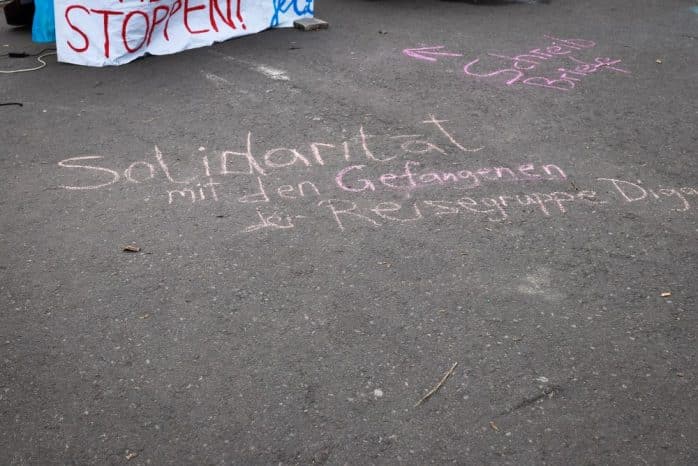 STOPPEN!
jetz
Schreib
Briefe
Solidarität
mit den Gefangenen
der Reisegruppe Digg